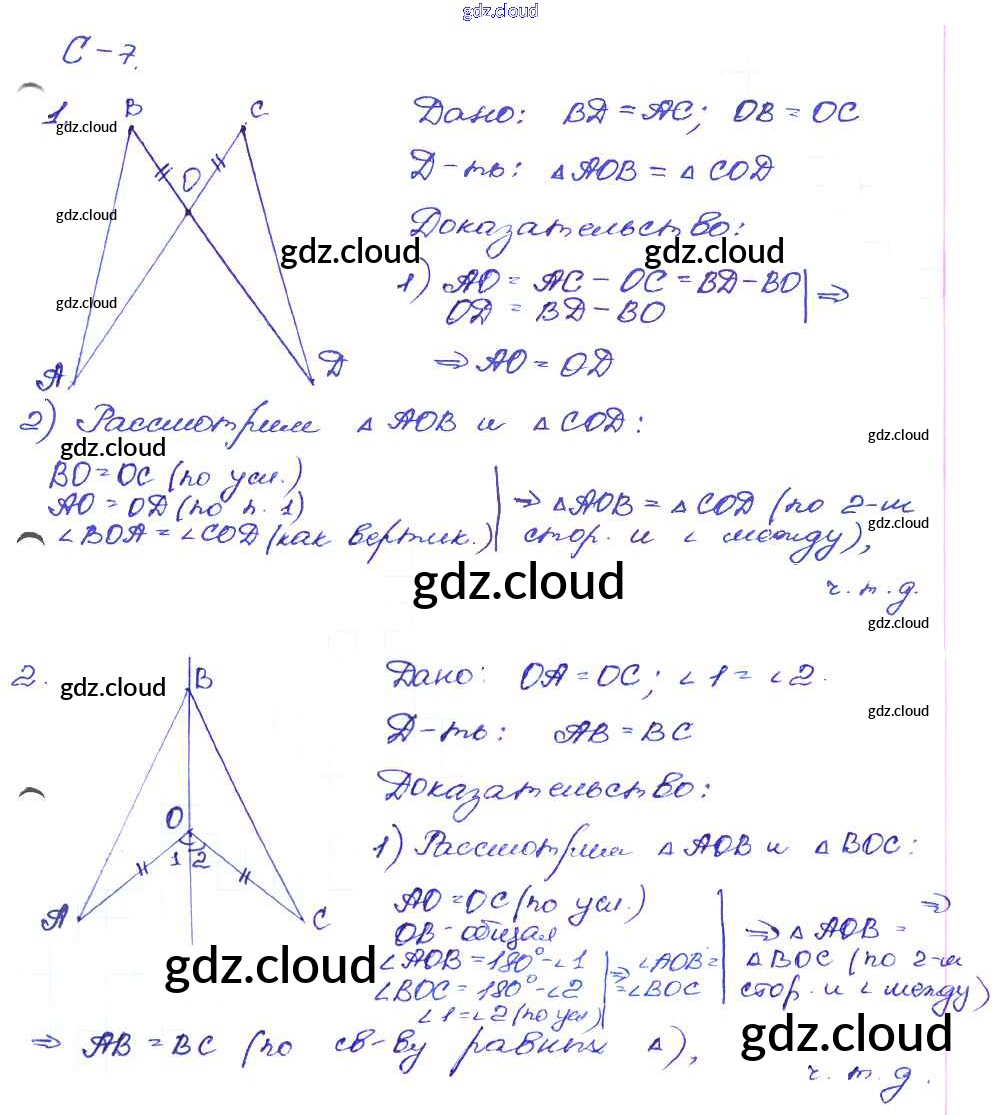 gdz.cloud
С-7.
1. B C
gdz.cloud
O
gdz.cloud
gdz.cloud
A D
Дано: BD = AC; OB = OC
Д-ть: △AOB = △COD
Доказательство:
gdz.cloud gdz.cloud
1) AO = AC - OC = BD - BO
OD = BD - BO | ⇒
⇒ AO = OD
2) Рассмотрим △AOB и △COD:
gdz.cloud gdz.cloud
BO = OC (по усл.)
AO = OD (по п. 1)
∠BOA = ∠COD (как вертик.)
⇒ △AOB = △COD (по 2-м
gdz.cloud
стор. и ∠ между),
gdz.cloud
ч.т.д.
gdz.cloud
2. gdz.cloud B
O
1 2
A C
Дано: OA = OC; ∠1 = ∠2.
gdz.cloud
Д-ть: AB = BC
Доказательство:
1) Рассмотрим △AOB и △BOC:
AO = OC (по усл.)
OB - общая
gdz.cloud
∠AOB = 180° - ∠1
∠BOC = 180° - ∠2
∠1 = ∠2 (по усл)
⇒ ∠AOB =
= ∠BOC
⇒
⇒ △AOB =
△BOC (по 2-м
стор. и ∠ между)
gdz.cloud
⇒ AB = BC (по св-ву равных △),
ч.т.д.